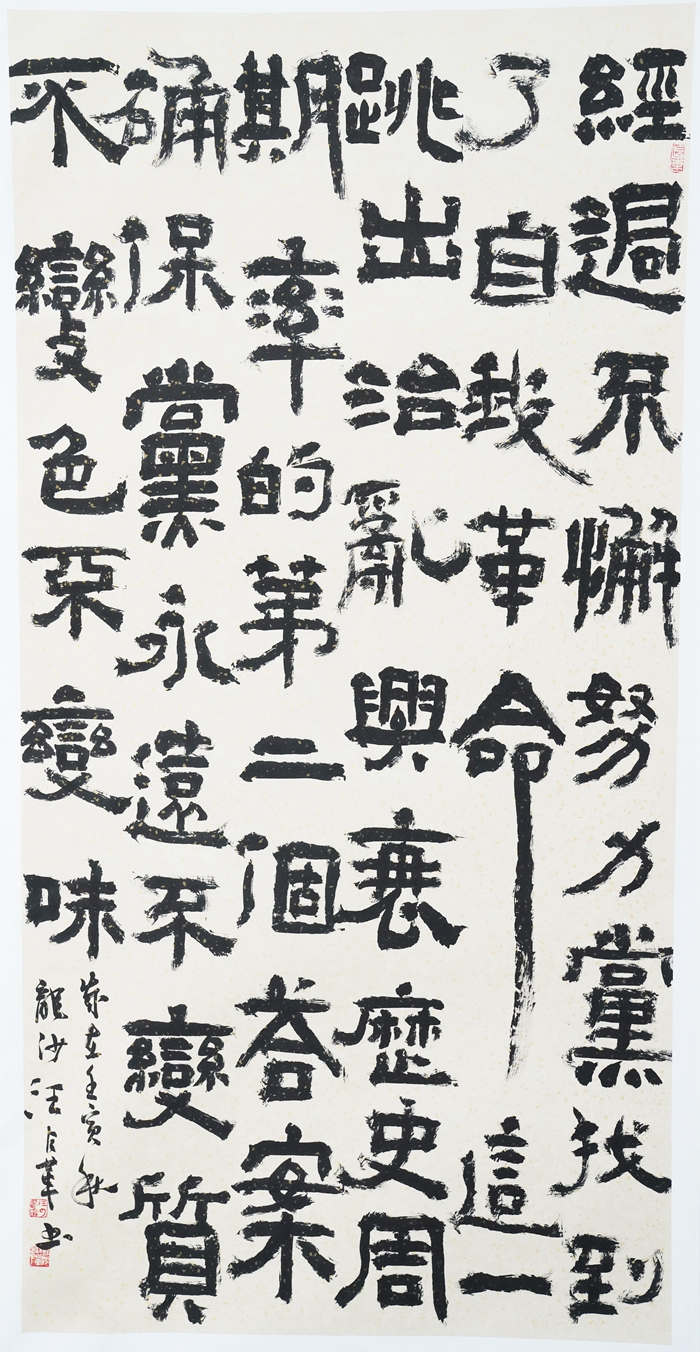 經過不懈努力黨找到
了自我革命這一
跳出治亂興衰歷史周
期率的第二個荅案
确保黨永遠不變質
不變色不變味
歲在壬寅秋
龍沙汪書